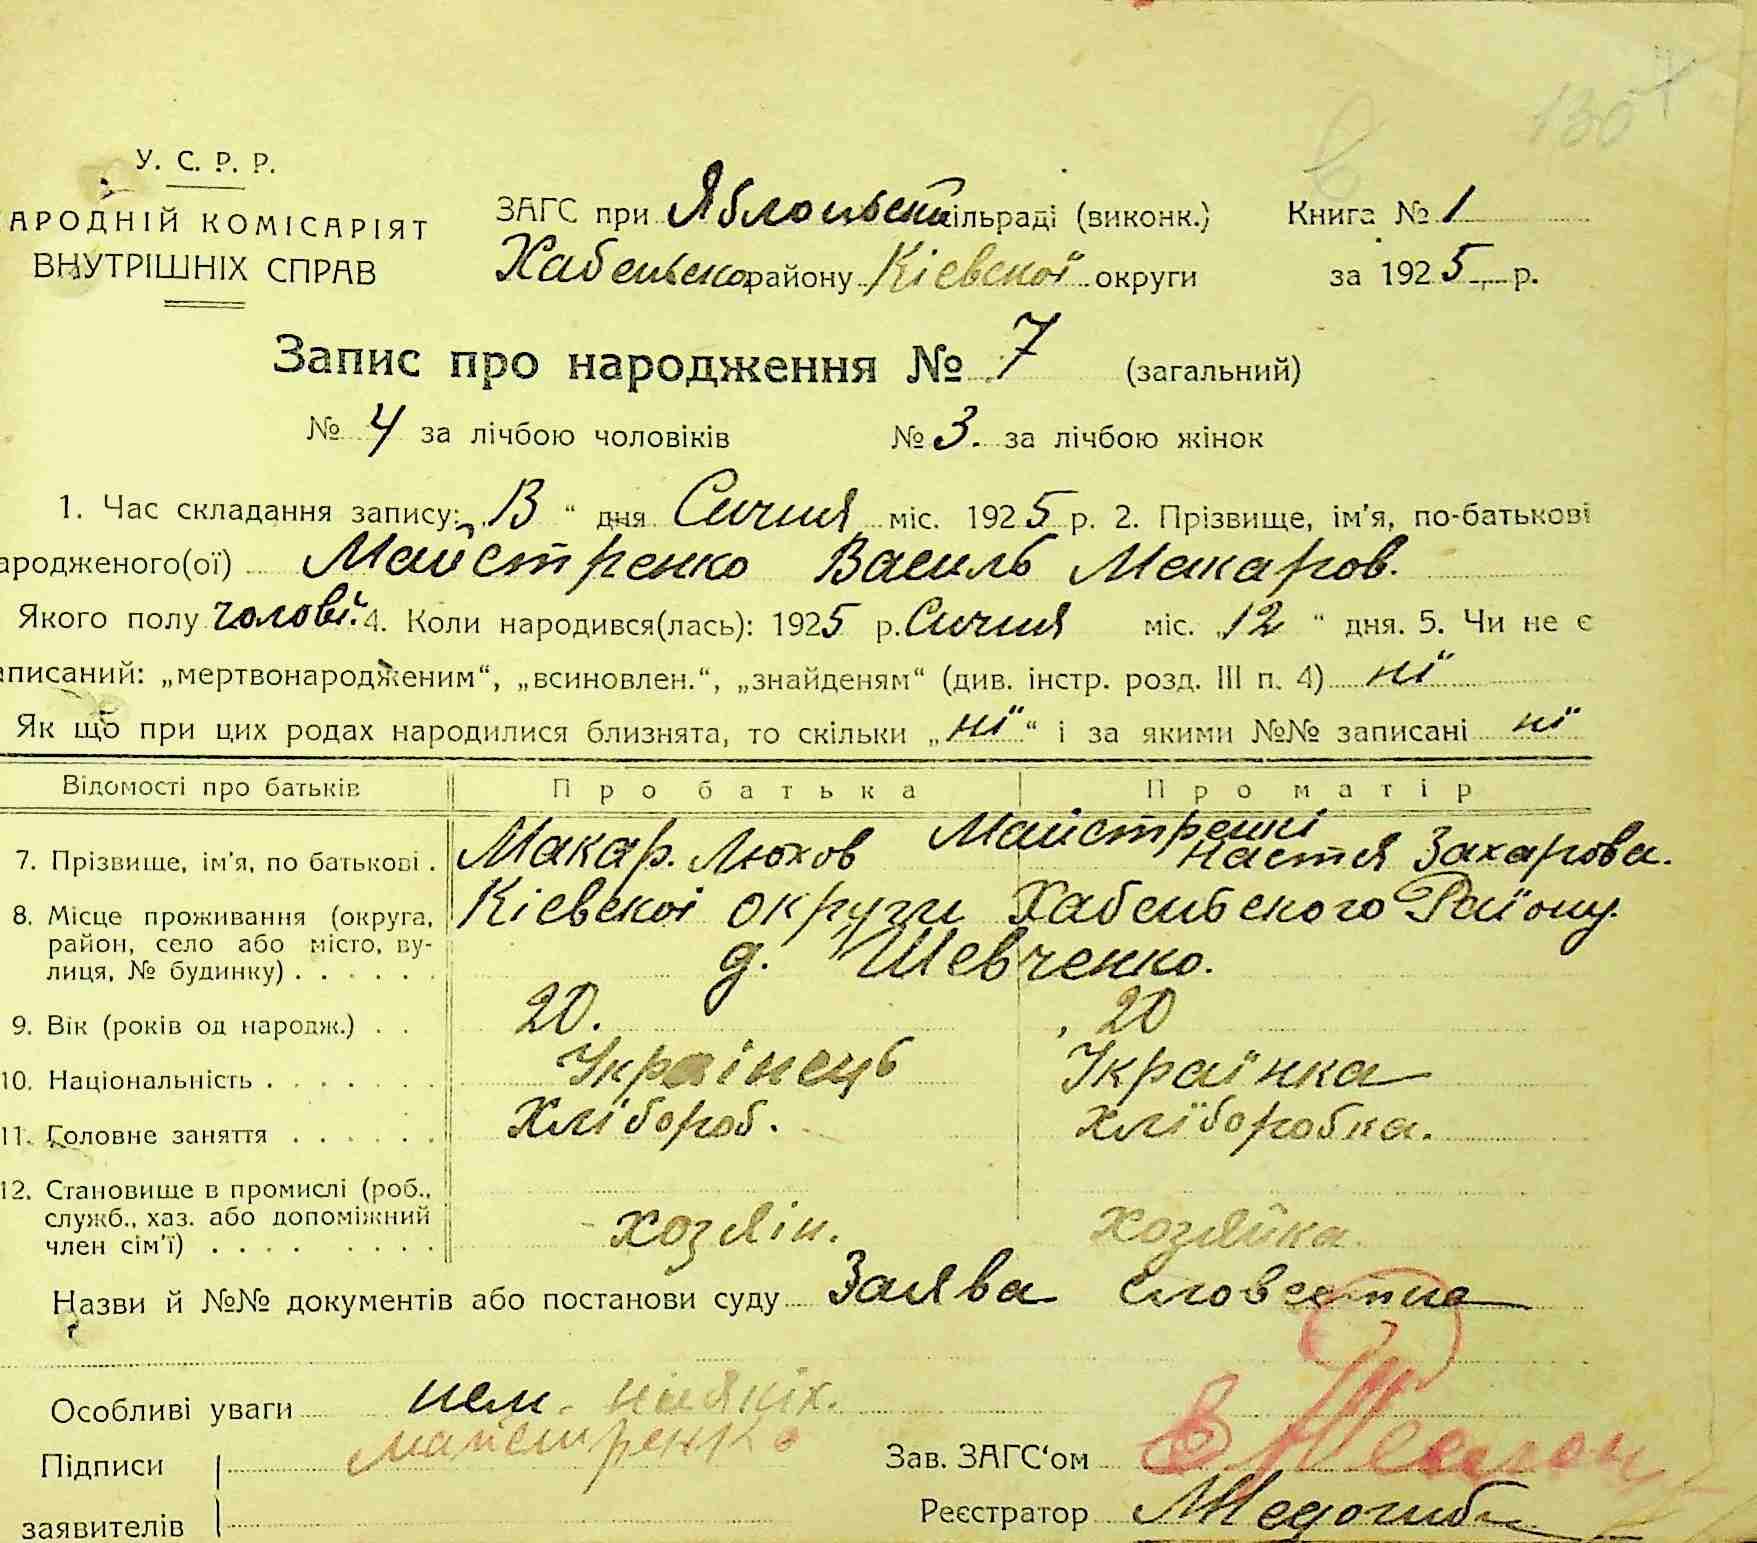 130
У. С. Р. Р.
АРОДНІЙ КОМІСАРІЯТ
ВНУТРІШНІХ СПРАВ
ЗАГС при Яблоньскій сільраді (виконк.)
Хабеньского району Кіевскоі округи
Книга № 1
за 1925 р.
Запис про народження № 7 (загальний)
№ 4 за лічбою чоловіків № 3. за лічбою жінок
1. Час складання запису: „13“ дня Сичня міс. 1925 р. 2. Прізвище, ім'я, по-батькові
ародженого(ої) Майстренко Василь Макаров.
Якого полу чолові. 4. Коли народився(лась): 1925 р. Сичня міс. „12“ дня. 5. Чи не є
аписаний: „мертвонародженим“, „всиновлен.“, „знайденям“ (див. інстр. розд. III п. 4) ні
Як що при цих родах народилися близнята, то скільки „ні“ і за якими №№ записані ні
Відомості про батьків Про батька Про матір
7. Прізвище, ім'я, по батькові. Макар. Люхов Майстренкі Настя Захарова.
8. Місце проживання (округа, район, село або місто, вулиця, № будинку) Кіевскоі округи Хабеньского Району.
д. Шевченко.
9. Вік (років од народж.) 20. 20
10. Національність Українець Українка
11. Головне заняття Хлібороб. Хліборобка.
12. Становище в промислі (роб., служб., хаз. або допоміжний член сім'ї) хозяін. хозяйка
Назви й №№ документів або постанови суду Заява словестна
Особливі уваги нем. ніякіх.
Підписи Майстренко
заявителів
Зав. ЗАГС'ом
Реєстратор